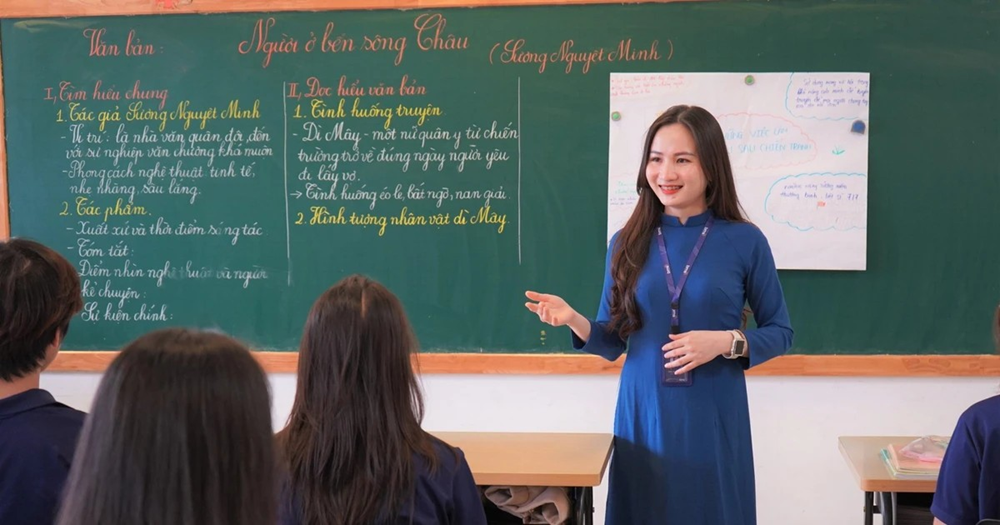 Văn bản: Người ở bến sông Châu (Sương Nguyệt Minh)
I, Tìm hiểu chung
1. Tác giả Sương Nguyệt Minh
- Vị trí: là nhà văn quân đội, đến
với sự nghiệp văn chương khá muộn
- Phong cách nghệ thuật: tinh tế,
nhẹ nhàng, sâu lắng.
2. Tác phẩm.
- Xuất xứ và thời điểm sáng tác
- Tóm tắt:
- Điểm nhìn nghệ thuật và người
kể chuyện:
- Sự kiện chính:
II, Đọc hiểu văn bản
1. Tình huống truyện
- Dì Mây - một nữ quân y từ chiến
trường trở về đúng ngày người yêu
đi lấy vợ.
→ Tình huống éo le, bất ngờ, nan giải.
2. Hình tượng nhân vật dì Mây.